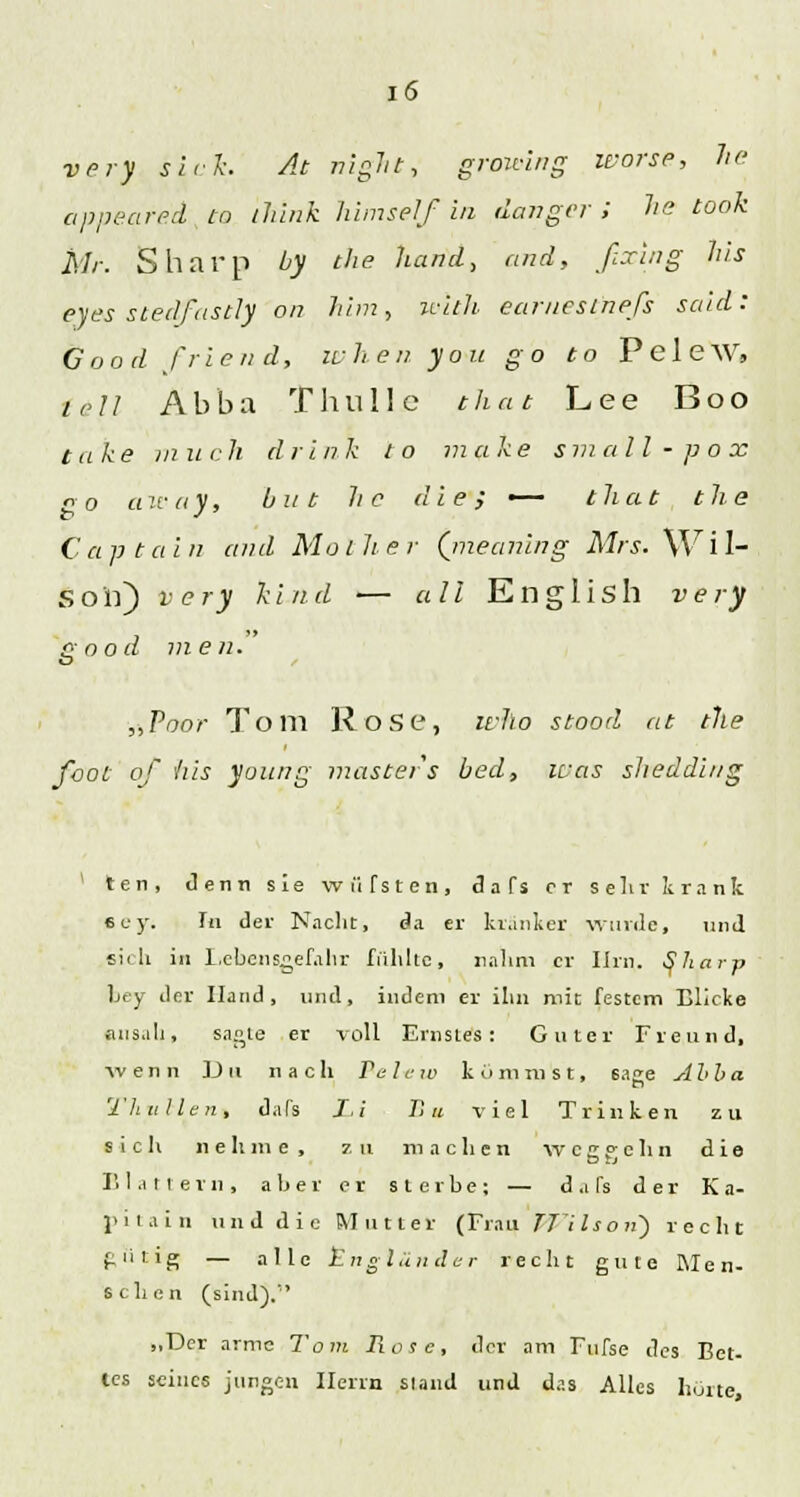 16
very sick. At night, growing worse, he
appeared to think himself in danger; he took
Mr. Sharp by the hand, and, fixing his
eyes stedfastly on him, with earnestnefs said:
Good friend, when you go to Pelew,
tell Abba Thulle that Lee Boo
take much drink to make small-pox
go away, but he die; — that the
Captain and Mother (meaning Mrs. Wil-
son) very kind — all English very
good men.”
„Poor Tom Rose, who stood at the
foot of his young master's bed, was shedding
ten, denn sie wüfsten, dafs er sehr krank
sey. In der Nacht, da er kränker wurde, und
sich in Lebensgefahr fühlte, nahm er Hrn. Sharp
bey der Hand, und, indem er ihn mit festem Blicke
ansah, sagte er voll Ernstes: Guter Freund,
wenn Du nach Pelew kömmst, sage Abba
Thullen, dafs Li Bu viel Trinken zu
sich nehme, zu machen weggehn die
Blattern, aber er sterbe; — dafs der Ka-
pitain und die Mutter (Frau Wilson) recht
gütig — alle Engländer recht gute Men-
schen (sind).”
„Der arme Tom Rose, der am Fufse des Bet-
tes seines jungen Herrn stand und das Alles hörte,